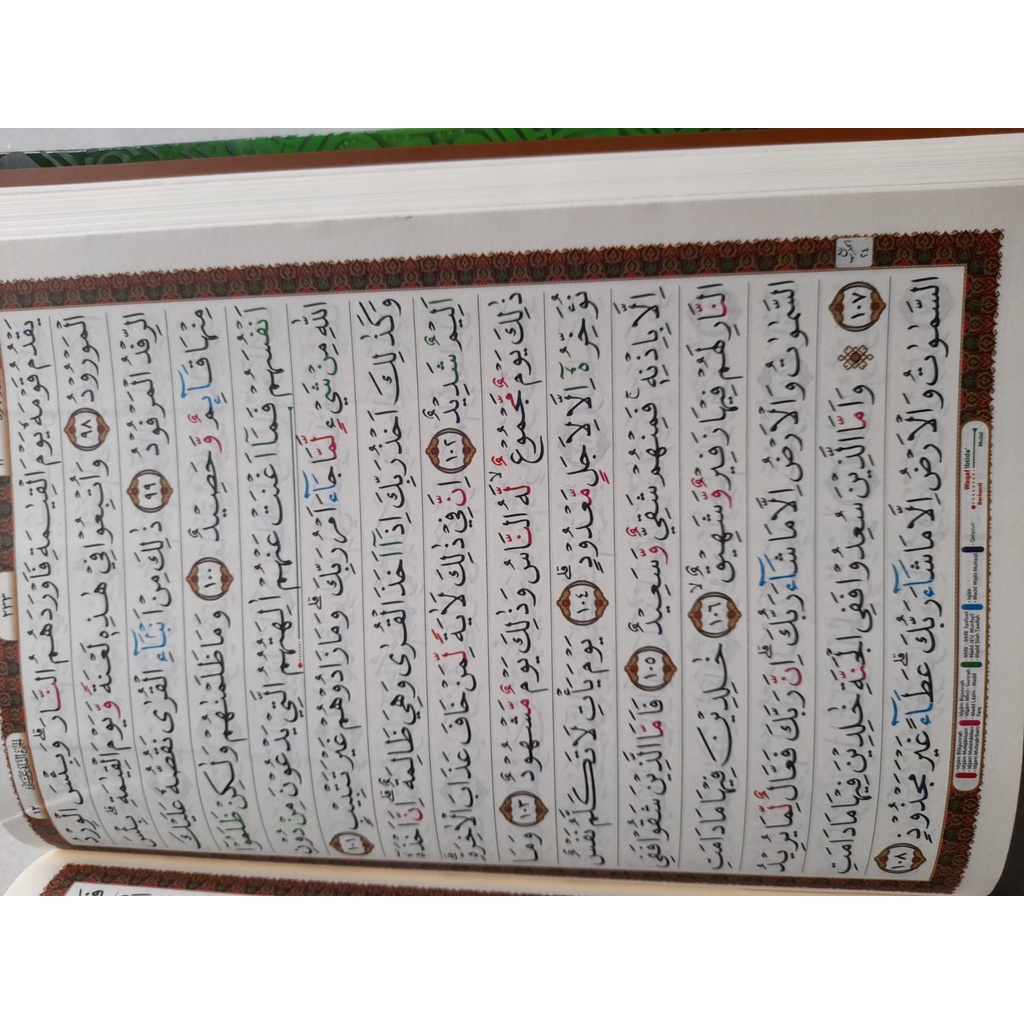 ٢٣٣
يَقْدُمُ قَوْمَهٗ يَوْمَ الْقِيٰمَةِ فَاَوْرَدَهُمُ النَّارَ ۗ وَبِئْسَ الْوِرْدُ
الْمَوْرُوْدُ ﴿٩٨﴾ وَاُتْبِعُوْا فِيْ هٰذِهٖ لَعْنَةً وَّيَوْمَ الْقِيٰمَةِ ۗ بِئْسَ
الرِّفْدُ الْمَرْفُوْدُ ﴿٩٩﴾ ذٰلِكَ مِنْ اَنْۢبَاۤءِ الْقُرٰى نَقُصُّهٗ عَلَيْكَ
مِنْهَا قَاۤىِٕمٌ وَّحَصِيْدٌ ﴿١٠٠﴾ وَمَا ظَلَمْنٰهُمْ وَلٰكِنْ ظَلَمُوْٓا
اَنْفُسَهُمْ فَمَآ اَغْنَتْ عَنْهُمْ اٰلِهَتُهُمُ الَّتِيْ يَدْعُوْنَ مِنْ دُوْنِ
اللّٰهِ مِنْ شَيْءٍ لَّمَّا جَاۤءَ اَمْرُ رَبِّكَ ۗ وَمَا زَادُوْهُمْ غَيْرَ تَتْبِيْبٍ ﴿١٠١﴾
وَكَذٰلِكَ اَخْذُ رَبِّكَ اِذَآ اَخَذَ الْقُرٰى وَهِيَ ظَالِمَةٌ ۗ اِنَّ اَخْذَهٗٓ
اَلِيْمٌ شَدِيْدٌ ﴿١٠٢﴾ اِنَّ فِيْ ذٰلِكَ لَاٰيَةً لِّمَنْ خَافَ عَذَابَ الْاٰخِرَةِ ۗ
ذٰلِكَ يَوْمٌ مَّجْمُوْعٌۙ لَّهُ النَّاسُ وَذٰلِكَ يَوْمٌ مَّشْهُوْدٌ ﴿١٠٣﴾ وَمَا
نُؤَخِّرُهٗٓ اِلَّا لِاَجَلٍ مَّعْدُوْدٍۗ ﴿١٠٤﴾ يَوْمَ يَأْتِ لَا تَكَلَّمُ نَفْسٌ
اِلَّا بِاِذْنِهٖۚ فَمِنْهُمْ شَقِيٌّ وَّسَعِيْدٌ ﴿١٠٥﴾ فَاَمَّا الَّذِيْنَ شَقُوْا فَفِى
النَّارِ لَهُمْ فِيْهَا زَفِيْرٌ وَّشَهِيْقٌۙ ﴿١٠٦﴾ خٰلِدِيْنَ فِيْهَا مَا دَامَتِ
السَّمٰوٰتُ وَالْاَرْضُ اِلَّا مَا شَاۤءَ رَبُّكَ ۗ اِنَّ رَبَّكَ فَعَّالٌ لِّمَا يُرِيْدُ
﴿١٠٧﴾ ۞ وَاَمَّا الَّذِيْنَ سُعِدُوْا فَفِى الْجَنَّةِ خٰلِدِيْنَ فِيْهَا مَا دَامَتِ
السَّمٰوٰتُ وَالْاَرْضُ اِلَّا مَا شَاۤءَ رَبُّكَ ۗ عَطَاۤءً غَيْرَ مَجْذُوْذٍ ﴿١٠٨﴾
Waqaf Ibtida'
Berhenti
Mulai